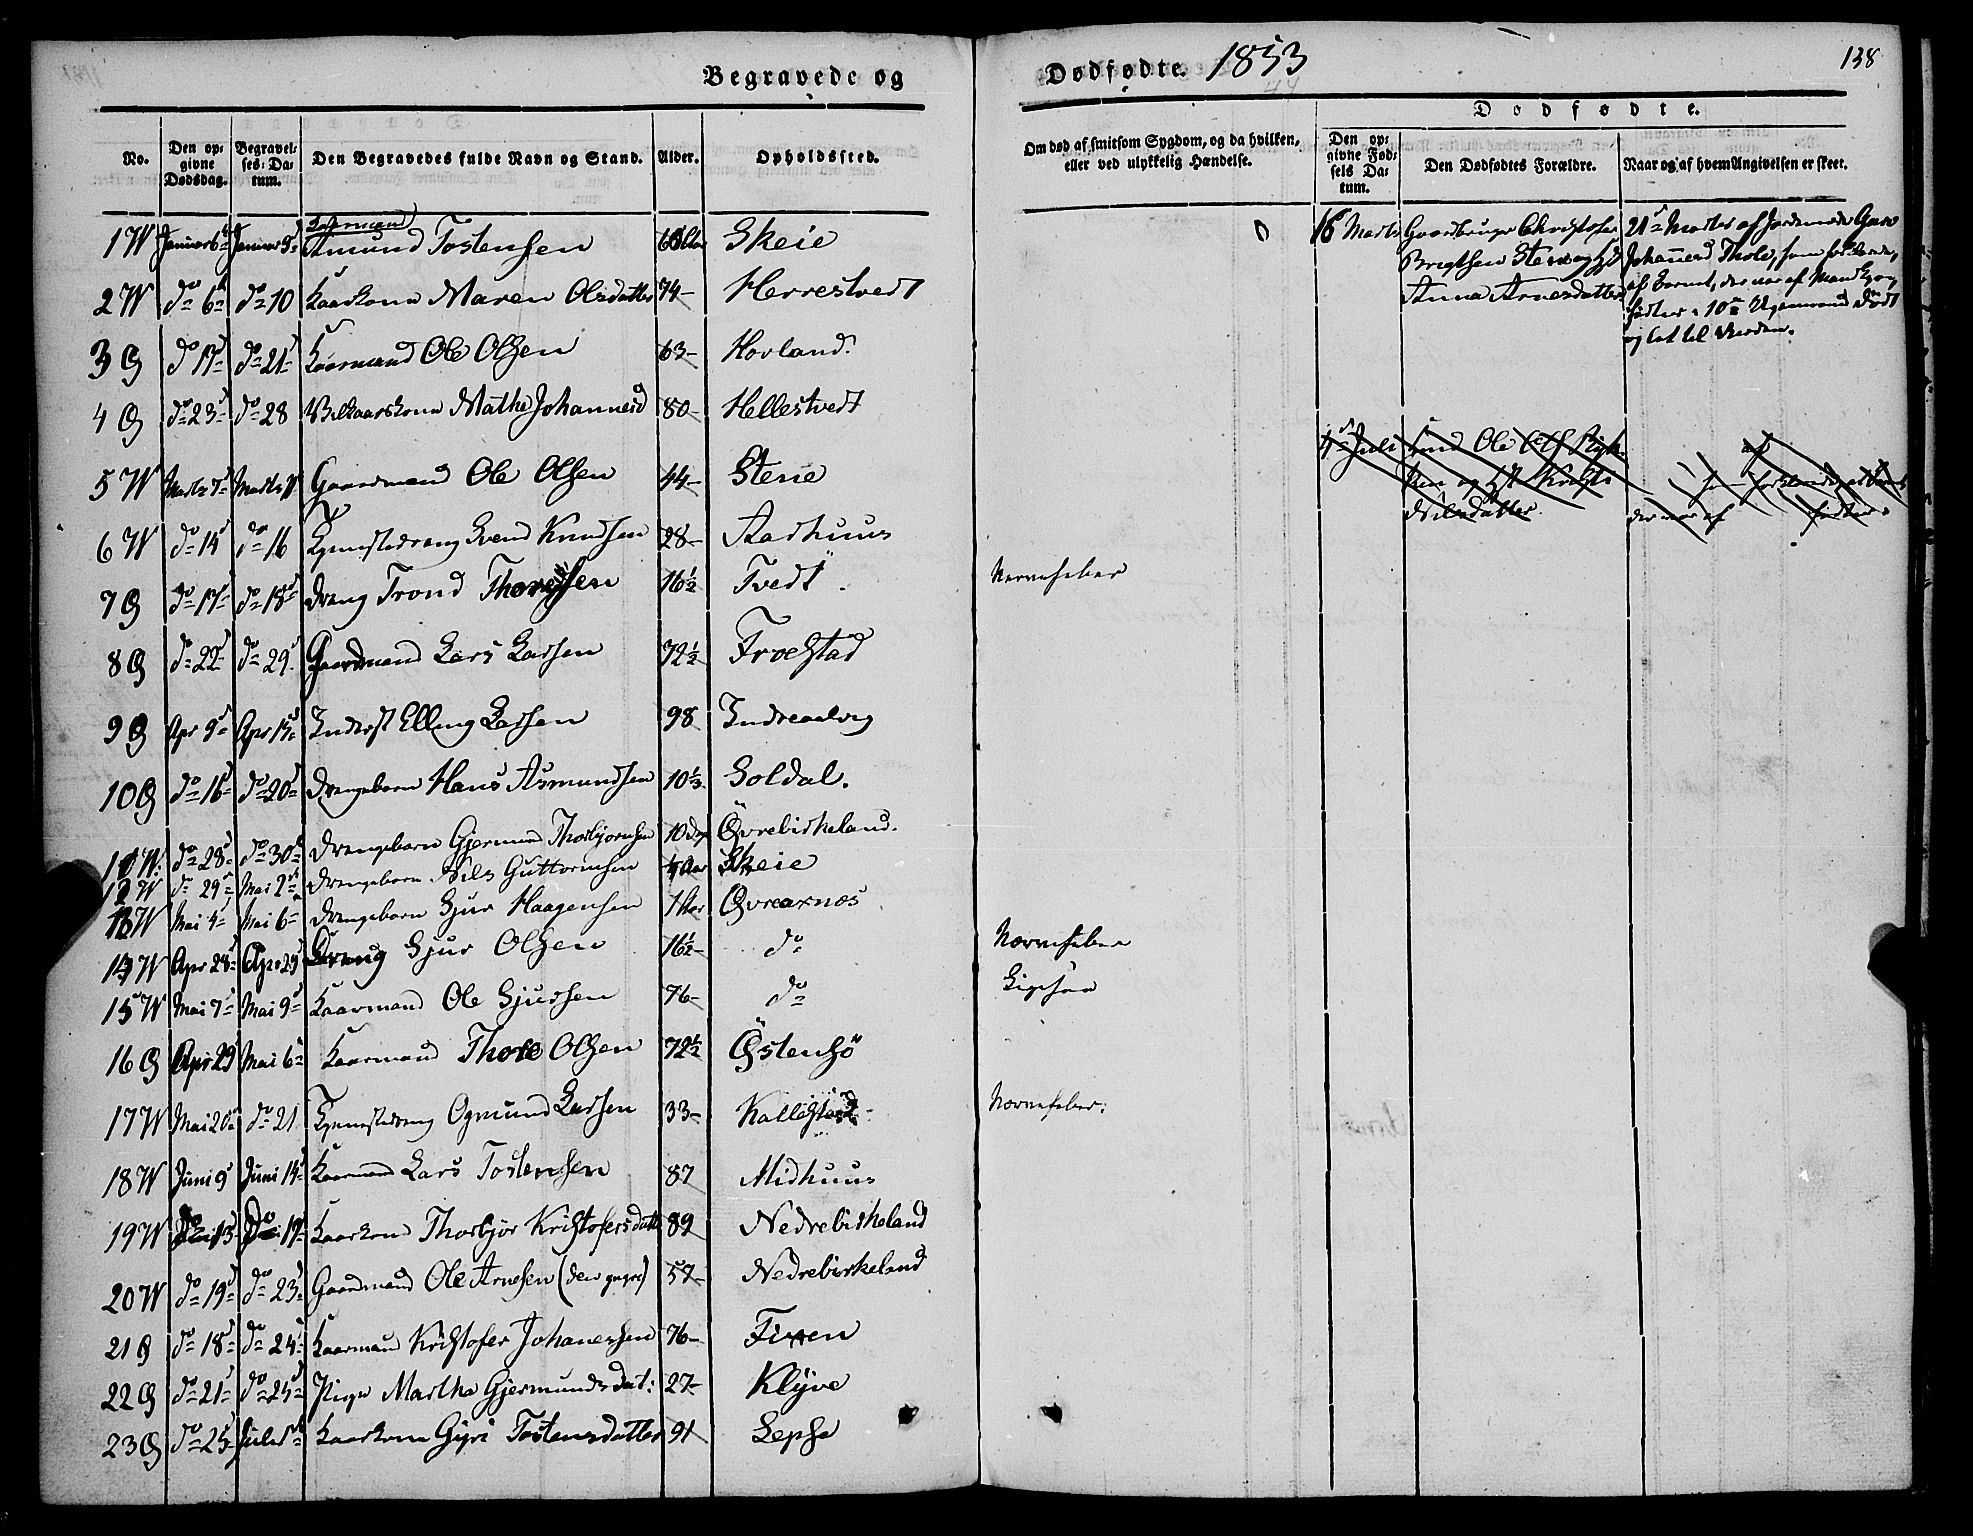 Begravede og Dødfødte. 1853
138
Dødfødte.
No. Den opgivne Dødsdag. Begravelses-Datum. Den Begravedes fulde Navn og Stand. Alder. Opholdssted. Om død af smitsom Sygdom, og da hvilken, eller ved ulykkelig Hændelse. Den opgivne Fødsels Datum. Den Dødfødtes Forældre. Naar og af hvem Angivelsen er skeet.
1 W Januar 6 Januar Kaarmand Amund Tostensen Skeie
2 W do 6 do 10 Kaarkone Maren Olsdatter 74 Herrestvedt
3 G do 17 do 21 Kaarmand Ole Olsen 63 Hovland.
4 G do 23 do 28 Vilkaarskone Mathe Johannesd 80 Hellestvedt
5 W Marts 7 Marts Gaardmand Ole Olsen 44 Stene
6 W do 14 do 16 Svend Knudsen 28 Aarhuus
7 G do 17 do 18 Dreng Trond 16½ Tvedt Nervefeber
8 G do 22 do 29 Gaardmand Lars Larsen 72½ Froestad
9 G Apr 9 Apr 15 Inderst Elling Larsen 98 Indreaalvig
10 G do 16 do 20 Drengebarn Hans Asmundsen 10⅓ Soldal.
11 W do 28 do 30 Drengebarn Gjermund Thorbjørnsen 10 Dage Øvrebirkeland.
12 W do 29 Mai 2 Drengebarn Nils Guttormsen Aar Skeie
13 W Mai 4 Mai 6 Drengebarn Sjur Haagensen 1 Aar Øvrearnæs
14 W Apr 28 Apr 29 Dreng Sjur Olsen 16½ do Nervefeber
15 W Mai 7 Mai 9 Kaarmand Ole Sjursen 76 do Ligesaa
16 G Apr 29 Mai 6 Kaarmand Thore Olsen 72½ Østensø
17 W Mai 20 do 21 Ogmund Larsen 33 Kallestad Nervefeber.
18 W Juni 9 Juni 14 Kaarmand Lars Tostensen 87 Midhuus
19 W do 13 do 17 Kaarkone Thorbjør Kristofersdatt 89 Nedrebirkeland
20 W do 19 do 23 Gaardmand Ole Arnesen (den yngre) 57 Nedrebirkeland
21 G do 18 do 24 Kaarmand Kristofer Johanessen 76 Fixen
22 G do 21 do 25 Pige Martha Gjermundsdat: 27 Klyve
23 G do 25 Kaarkone Gyri Tostensdatter 91 Lepsø
16 Marts Gaardbruger Christofer
Brigtsen Stene og H
Anna Arnesdatter
21 Marts af Jordemoder Guro
Johannesd Thole, som forklarede,
at Barnet, der var af Mandkjøn,
fødtes 10 Uger død
og lot til Verden.
4 Juli Ole
og H
Nilsdatter
af
som forklarede, at Barnet
der var af fødtes